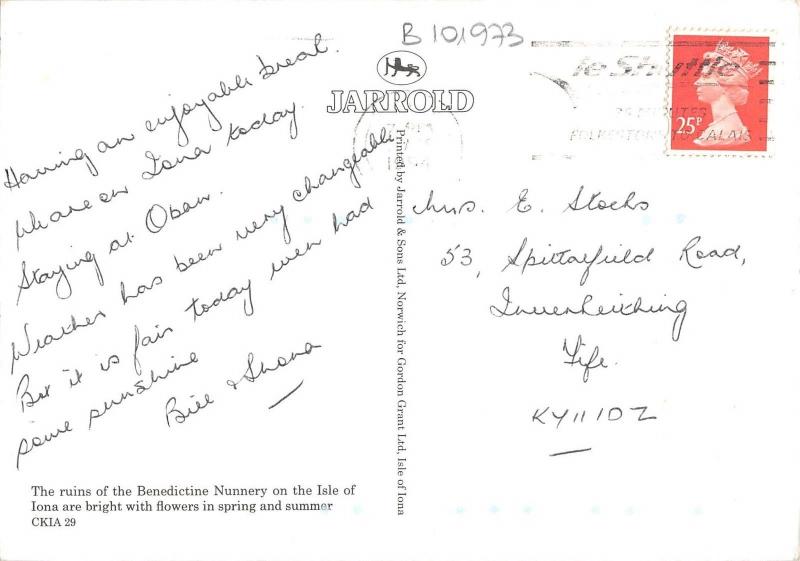 B 101973
JARROLD
le Shuttle
35 MINUTES
FOLKESTONE TO CALAIS
25P
Having an enjoyable break.
We are on Iona today.
Staying at Oban.
Weather has been very changeable
But it is fair today even had
some sunshine
Bill & Shona
Printed by Jarrold & Sons Ltd, Norwich for Gordon Grant Ltd, Isle of Iona
Mrs. E. Stocks
53, Spittalfield Road,
Inverkeithing
Fife.
KY11 1DZ
The ruins of the Benedictine Nunnery on the Isle of
Iona are bright with flowers in spring and summer
CKIA 29